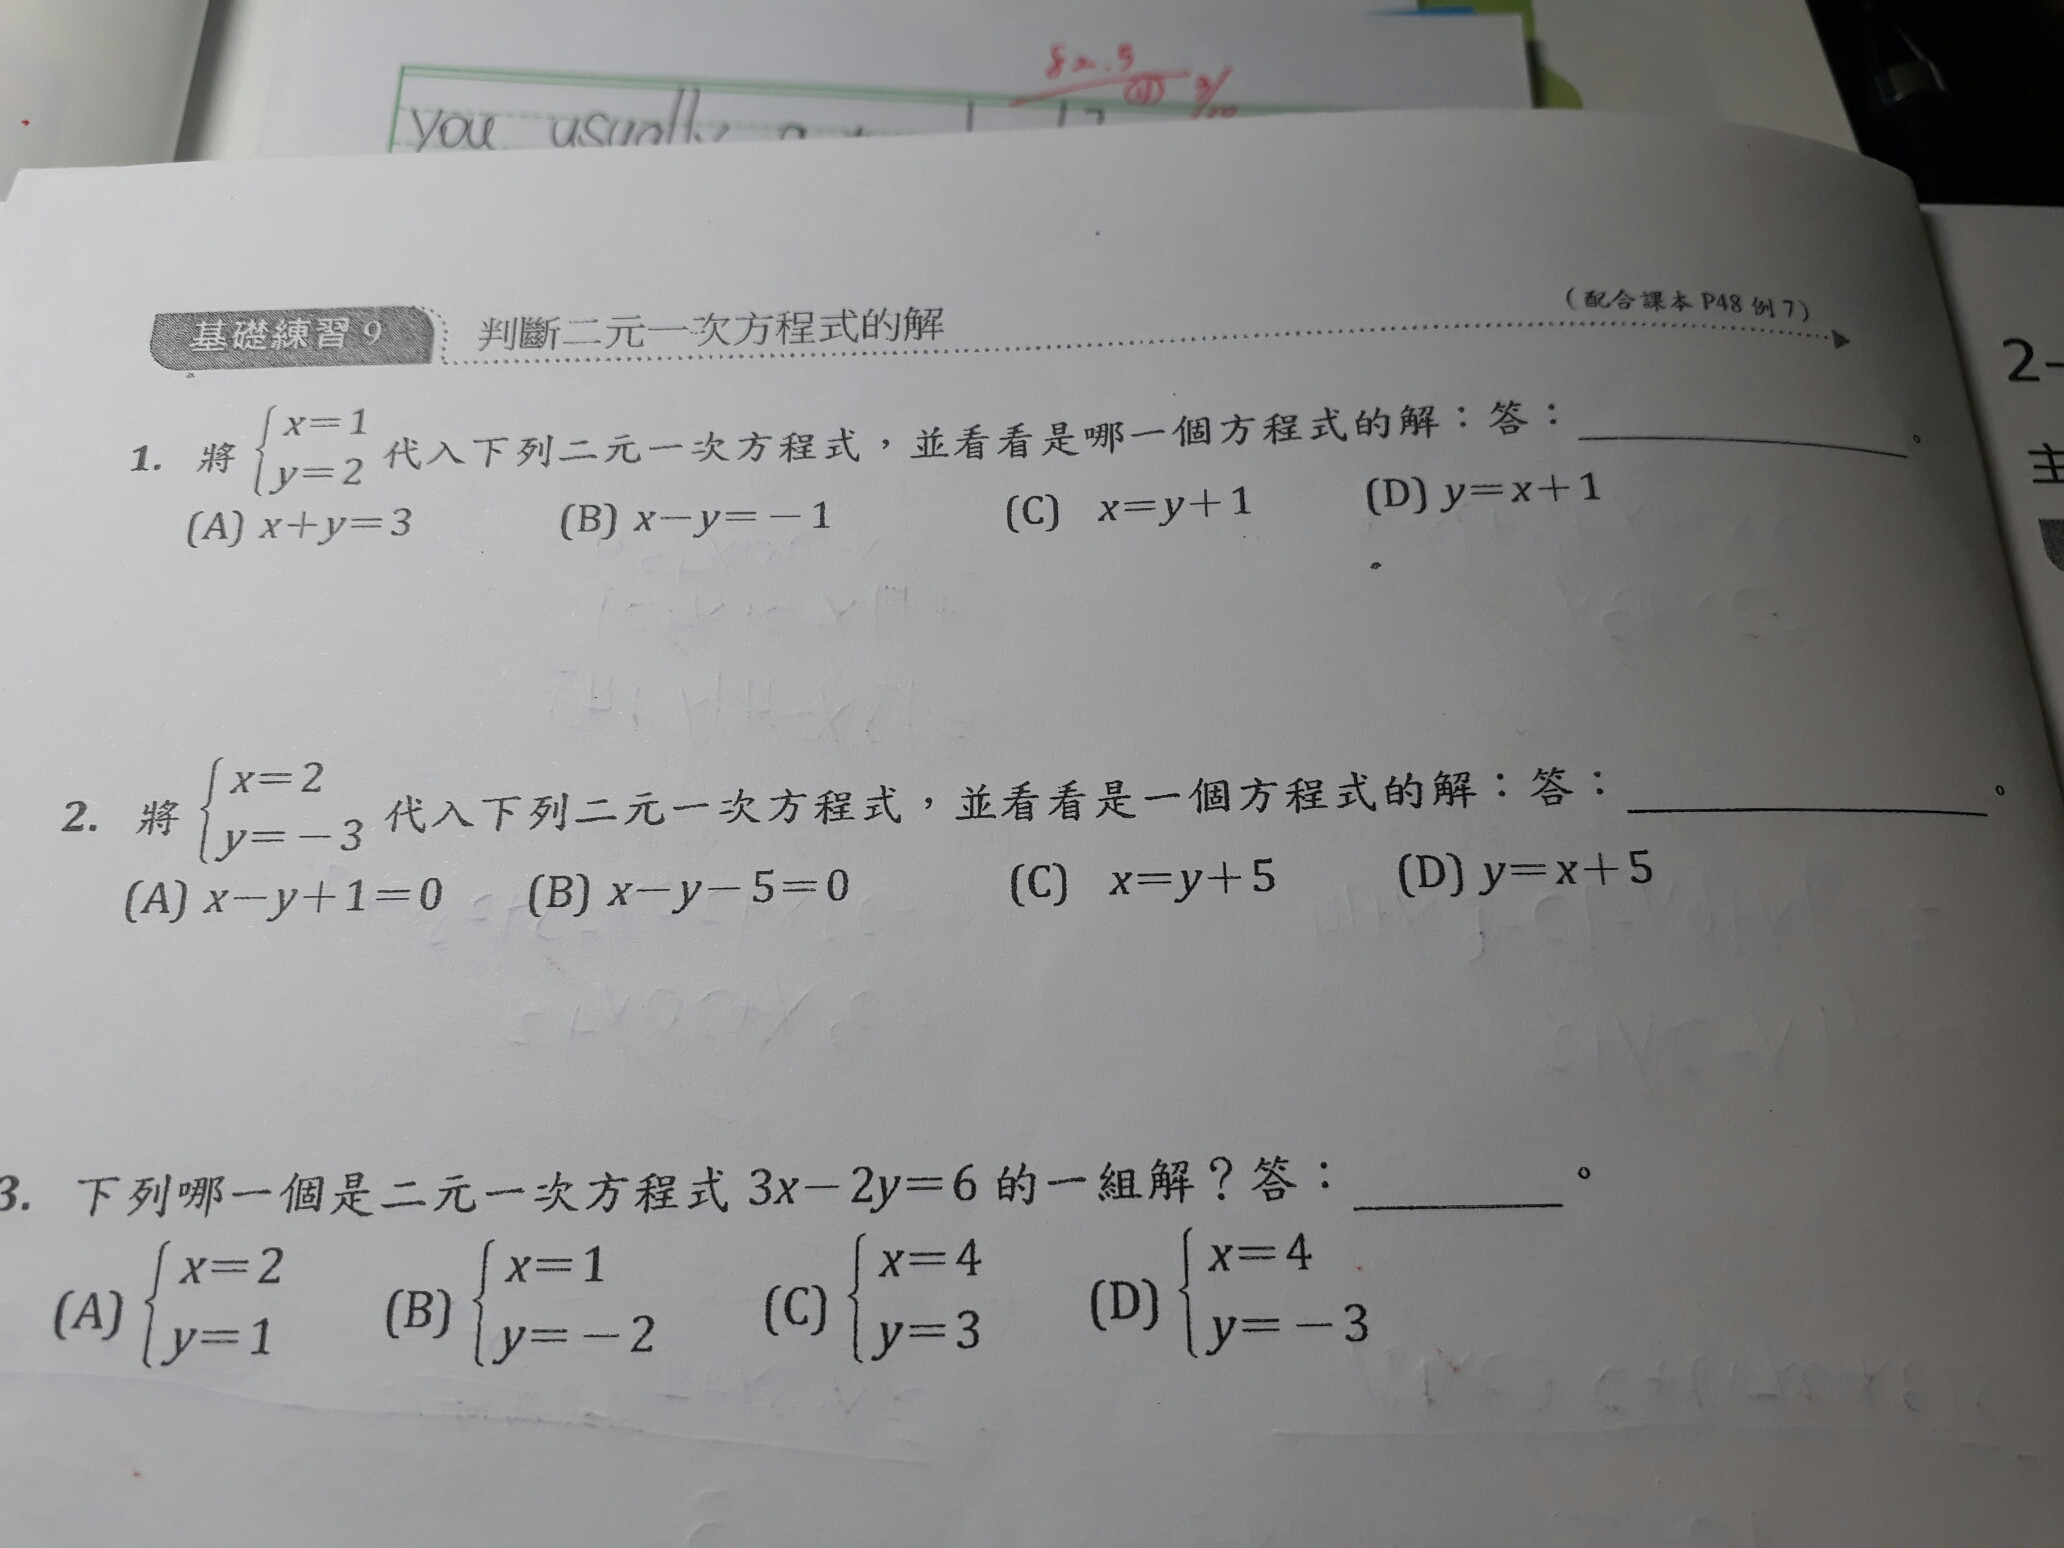 82.5
you usually
基礎練習 9 判斷二元一次方程式的解 (配合課本 P48 例 7)
1. 將 {x=1 y=2 代入下列二元一次方程式，並看看是哪一個方程式的解：答：＿＿＿＿。
(A) x+y=3 (B) x-y=-1 (C) x=y+1 (D) y=x+1
2. 將 {x=2 y=-3 代入下列二元一次方程式，並看看是一個方程式的解：答：＿＿＿＿。
(A) x-y+1=0 (B) x-y-5=0 (C) x=y+5 (D) y=x+5
3. 下列哪一個是二元一次方程式 3x-2y=6 的一組解？答：＿＿＿＿。
(A) {x=2 y=1 (B) {x=1 y=-2 (C) {x=4 y=3 (D) {x=4 y=-3
2-
主